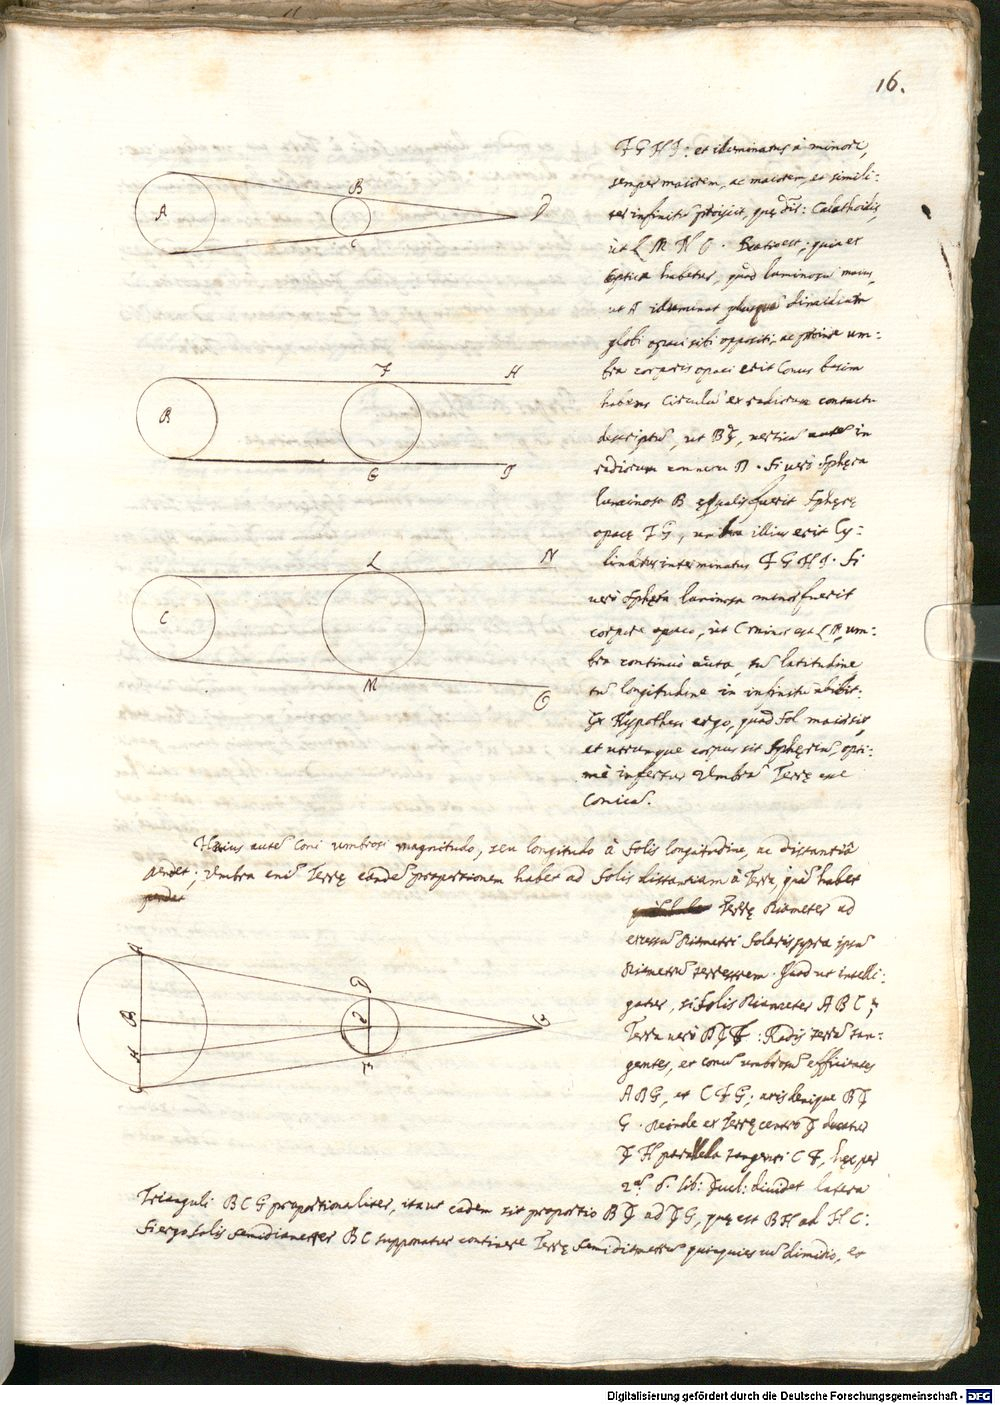 16.
F G H I: et illuminatus à minori,
semper maiorem, ac maiorem, et simili:
ter infinitū proijcit, quę dr̄: Calathoidis,
ut L M N O. Ratio est; quia ex
Optica habetur, quod luminosū maius,
ut A illuminat plusquā dimidium
globi opaci sibi oppositi, ac proinde um:
bra corporis opaci erit Conus basim
habens Circulū ex radiorum contactu
descriptū, ut B , verticē autē in
radiorum concursu D. Si uerò Sphęra
luminosa B ęqualis fuerit Sphęrę
opacę F G, umbra illius erit Cy:
lindrus interminatus F G H I. Si
uerò Sphęra luminosa minor fuerit
corpore opaco, ut C minor est L M, um:
bra continuò aucta, tū latitudine
tū longitudine in infinitū abibit.
Ex Hypothesi ergo, quod Sol maior sit,
et utrunque corpus sit Sphęricū, opti:
mè infertur Umbrā Terrę esse
Conicā.
A
B
C
D
B
F
H
G
I
C
L
N
M
O
Huius autē Coni umbrosi magnitudo, seu longitudo à Solis longitudine, ac distantiâ
pendet; Umbra enī Terrę eandē proportionem habet ad Solis distantiam à Terra, quā habet
pendet
Terrę diameter ad
excessū diametri Solaris supra ipsū
diametrū terrestrem. Quod ut intelli:
gatur, sit Solis diameter A B C;
Terrę uerò D E F: Radij terrā tan:
gentes, et conū umbrosū efficientes
A D G, et C F G; axis denique B E
G. Deinde ex Terrę centro E ducatur
E H parallela tangenti C F, hęc per
2ā 6. lib: Eucl: diuidet latera
A
B
H
C
D
E
F
G
Trianguli B C G proportionaliter, ita ut eadem sit proportio B E ad E G, quę est B H ad H C:
Si ergo Solis semidiameter B C supponatur continere Terrę semidiametrū quinquies cū dimidio, et
Digitalisierung gefördert durch die Deutsche Forschungsgemeinschaft - DFG